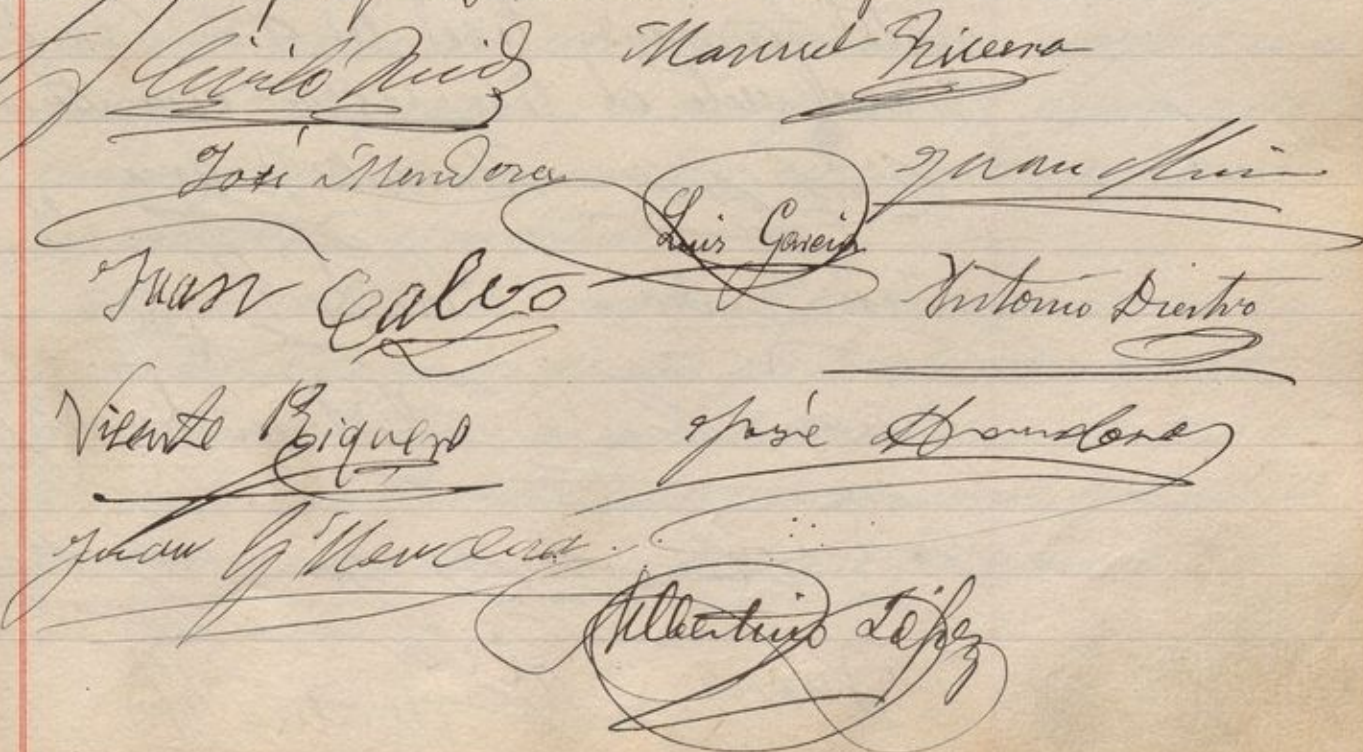 Cirilo Ruiz Manuel Riccera
José Mendoza Luis Garcia Juan
Juan Calvo Antonio Diestro
Vicente Biquero José Mendoza
Juan G. Mendoza
Albertino López